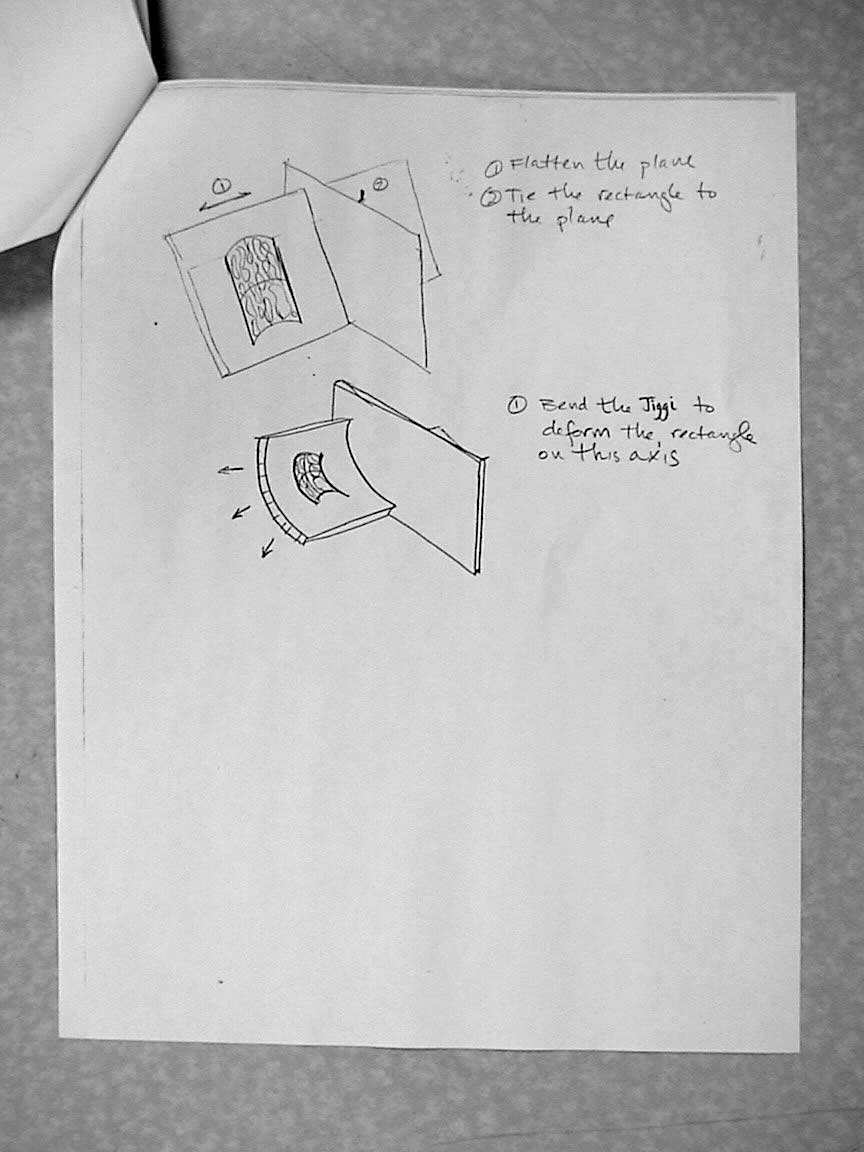 ① Flatten the plane
② Tie the rectangle to
the plane
①
②
① Bend the Jiggi to
deform the rectangle
on this axis